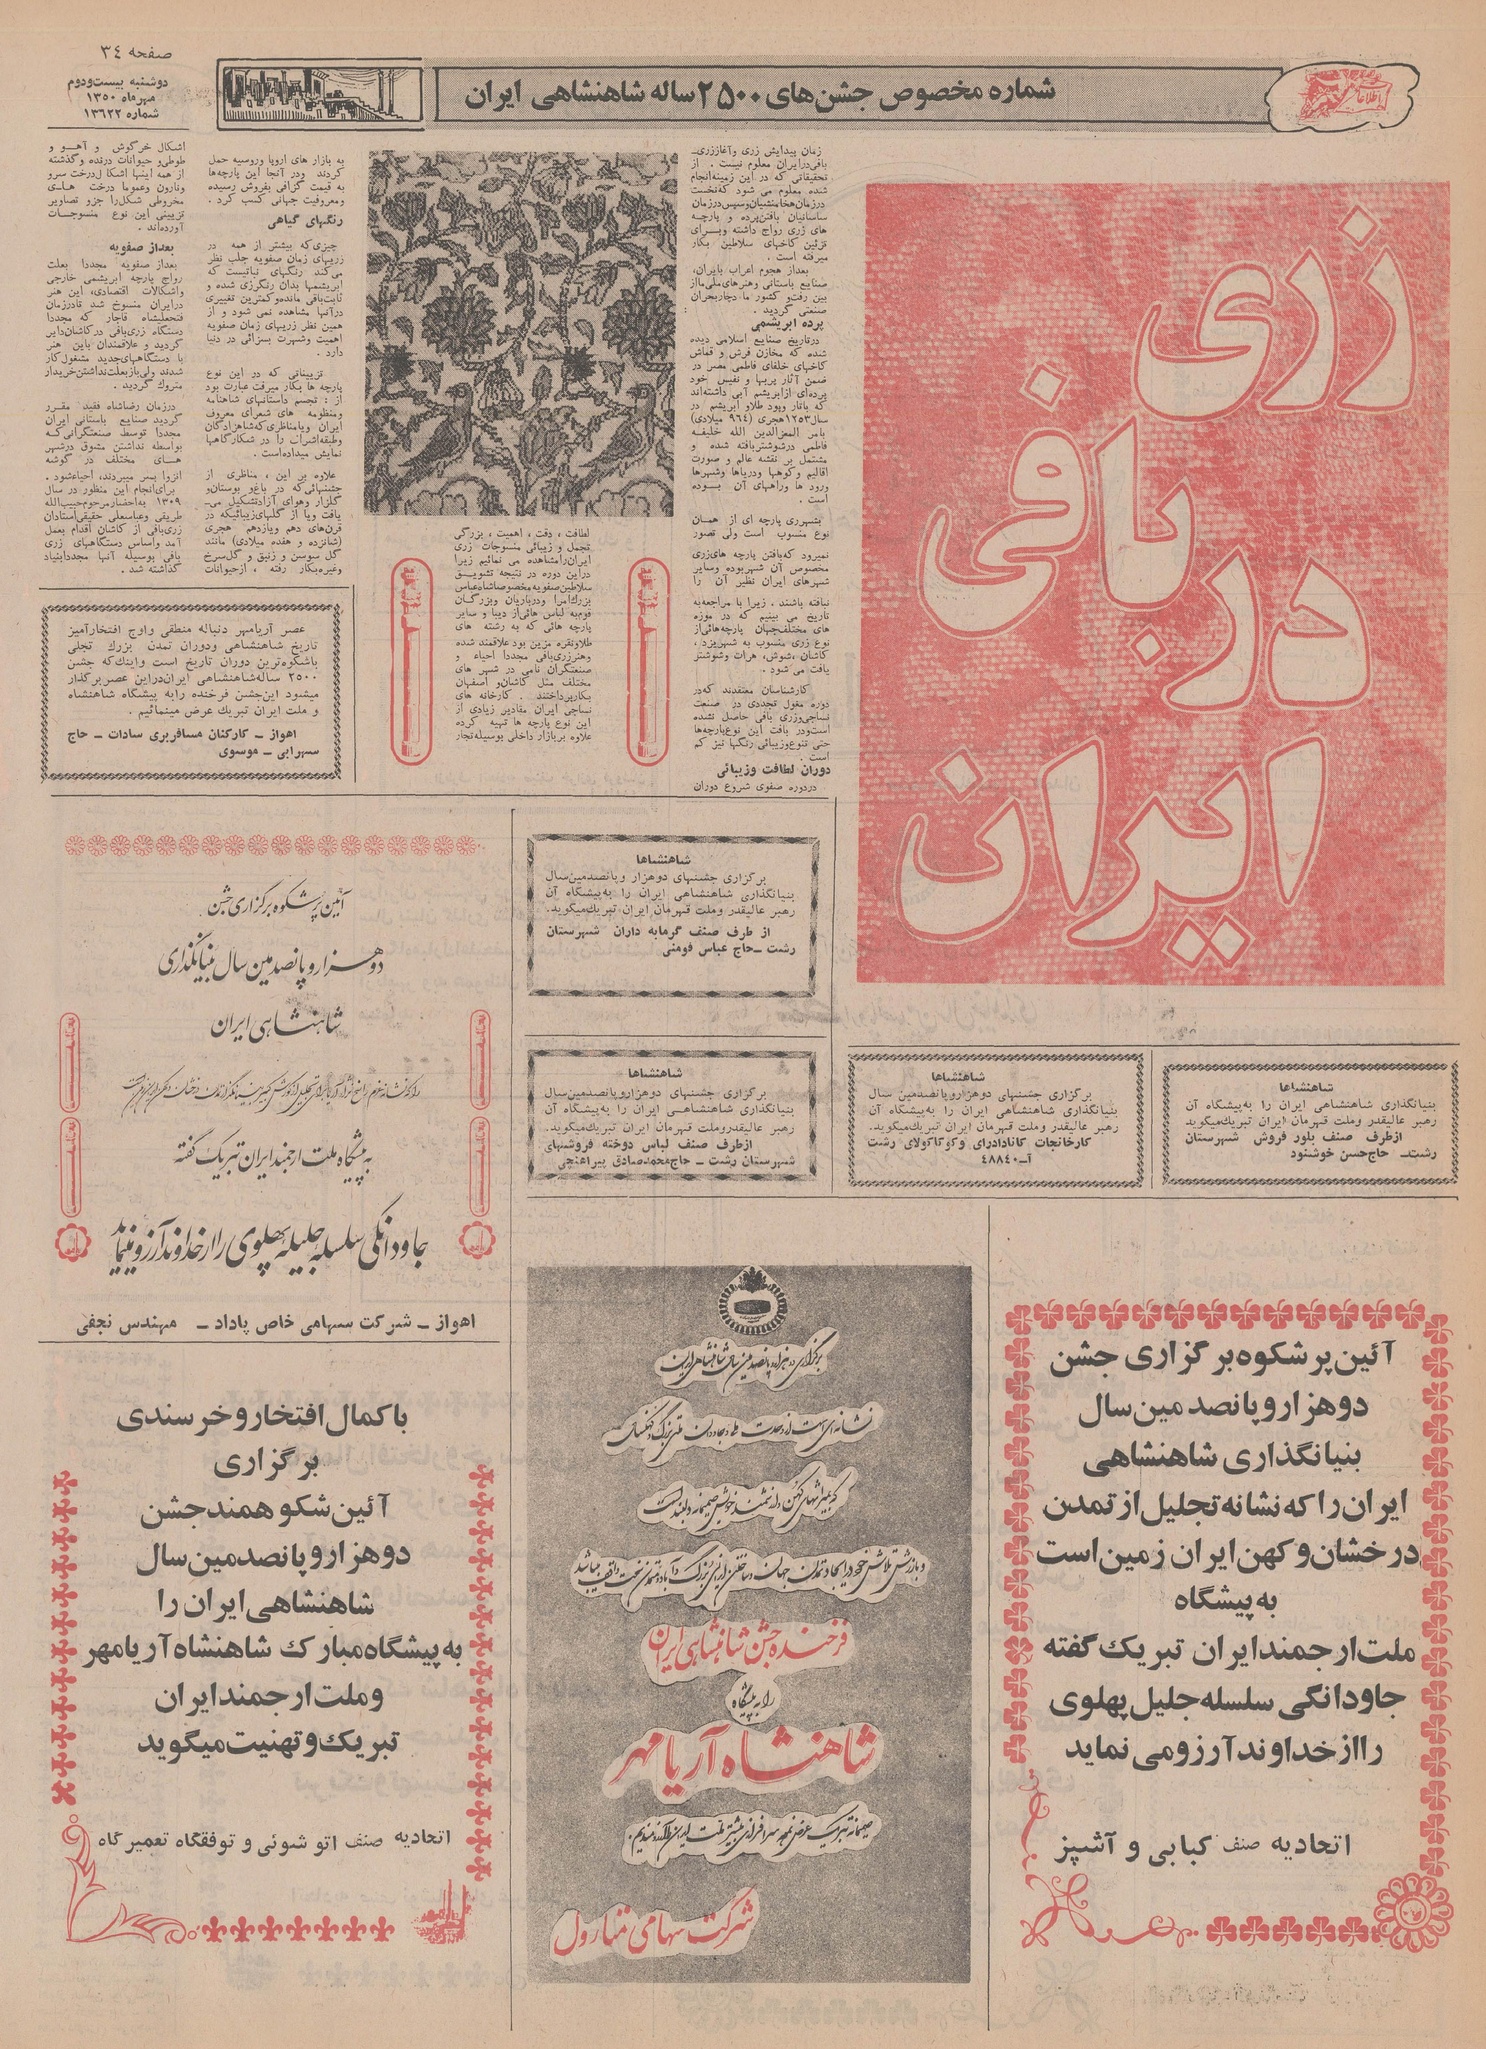 صفحه ٣٤
دوشنبه بیست‌و‌دوم
مهرماه ۱۳۵۰
شماره ۱۳۶۲۲
شماره مخصوص جشن‌های ۲۵۰۰ ساله شاهنشاهی ایران
اطلاعات
زری
بافی
در
ایران
زمان پیدایش زری وآغاززری‌ـ
بافی‌درایران معلوم نیست . از
تحقیقاتی که در این زمینه‌انجام
شده معلوم می شود که‌نخست
درزمان‌هخامنشیان‌وسپس‌درزمان
ساسانیان بافتن‌پرده و پارچه
های زری رواج داشته وبرای
تزئین کاخهای سلاطین بکار
میرفته است .
بعداز هجوم اعراب بایران،
صنایع باستانی وهنرهای‌ملی‌مااز
بین رفت‌و کشور ما دچاربحران
صنعتی گردید .
پرده ابریشمی
درتاریخ صنایع اسلامی دیده
شده که مخازن فرش و قماش
کاخهای خلفای فاطمی مصر در
ضمن آثار پربها و نفیس خود
پرده‌ای ازابریشم آبی داشته‌اند
که باتار وپود طلاو ابریشم در
سال۱۲۵۳هجری (۹٦٤ میلادی)
بامر المعزالدین الله خلیفه
فاطمی درشوشتربافته شده و
مشتمل بر نقشه عالم و صورت
اقالیم وکوهها ودریاها وشهرها
ورود ها وراههای آن بوده
است .
بشهرری پارچه ای از همان
نوع منسوب است ولی تصور
نمیرود که‌بافتن پارچه های‌زری
مخصوص آن شهربوده وسایر
شهرهای ایران نظیر آن را
نبافته باشند . زیرا با مراجعه‌به
تاریخ می بینیم که در موزه
های مختلف‌جهان پارچه‌هائی‌از
نوع زری منسوب به شهریزد ،
کاشان ،شوش، هرات وشوشتر
یافت می شود .
کارشناسان معتقدند که‌در
دوره مغول تجددی در صنعت
نساجی‌وزری بافی حاصل نشده
است‌ودر بافت این نوع‌پارچه‌ها
حتی تنوع‌وزیبائی رنگها نیز کم
است .
دوران لطافت وزیبائی
دردوره صفوی شروع دوران
لطافت ، دقت ، اهمیت ، بزرگی
تجمل و زیبائی منسوجات زری
ایران‌رامشاهده می نمائیم زیرا
دراین دوره در نتیجه تشویق
سلاطین‌صفویه‌مخصوصاشاه‌عباس
بزرک‌امرا ودرباریان وبزرگان
قوم‌به لباس هائی‌از دیبا و سایر
پارچه هائی که به رشته های
طلاونقره مزین بود علاقمند شده
وهنرزری‌بافی مجددا احیاء و
صنعتگران نامی در شهر های
مختلف مثل کاشان‌و اصفهان
بکارپرداختند . کارخانه های
نساجی ایران مقادیر زیادی از
این نوع پارچه ها تهیه کرده
علاوه بربازار داخلی بوسیله‌تجار
به بازار های اروپا وروسیه حمل
کردند ودر آنجا این پارچه‌ها
به قیمت گزافی بفروش رسیده
ومعروفیت جهانی کسب کرد .
رنگهای گیاهی
چیزی‌که بیشتر از همه در
زریهای زمان صفویه جلب نظر
می‌کند رنگهای نباتیست که
ابریشمها بدان رنگرزی شده و
ثابت‌باقی مانده‌وکمترین تغییری
درآنها مشاهده نمی شود و از
همین نظر زریهای زمان صفویه
اهمیت وشهرت بسزائی در دنیا
دارد .
تزییناتی که در این نوع
پارچه ها بکار میرفت عبارت بود
از : تجسم داستانهای شاهنامه
ومنظومه های شعرای معروف
ایران ویامناظری‌که‌شاهزادگان
وطبقه‌اشراف را در شکارگاهها
نمایش میداده‌است .
علاوه بر این ، مناظری از
جشنهائی‌که در باغ‌و بوستان‌و
گلزار وهوای آزادتشکیل می‌ـ
یافت ویا از گلهای‌زیبائیکه در
قرن‌های دهم ویازدهم هجری
(شانزده و هفده میلادی) مانند
گل سوسن و زنبق و گل‌سرخ
وغیره‌بکار رفته ، ازحیوانات
اشکال خرگوش و آهو و
طوطی‌و حیوانات درنده وگذشته
از همه اینها اشکال‌درخت سرو
ونارون وعموما درخت های
مخروطی شکل‌را جزو تصاویر
تزیینی این نوع منسوجات
آورده‌اند .
بعداز صفویه
بعداز صفویه مجددا بعلت
رواج پارچه ابریشمی خارجی
واشکالات اقتصادی، این هنر
درایران منسوخ شد تادرزمان
فتحعلیشاه قاجار که مجددا
دستگاه زری‌بافی درکاشان‌دایر
گردید و علاقمندان باین هنر
با دستگاههای‌جدید مشغول‌کار
شدند ولی‌بازبعلت‌نداشتن‌خریدار
متروك گردید .
درزمان رضاشاه فقید مقرر
گردید صنایع باستانی ایران
مجددا توسط صنعتگرانی‌که
بواسطه نداشتن مشوق درشهر
های مختلف در گوشه
انزوا بسر میبردند، احیاءشود .
برای‌انجام این منظور در سال
۱۳۰۹ به‌احضارمرحوم‌حبیب‌الله
طریقی وعباسعلی حقیقی‌استادان
زری‌بافی از کاشان اقدام بعمل
آمد واساس دستگاههای زری
بافی بوسیله آنها مجددابنیاد
گذاشته شد .
عصر آریامهر دنباله منطقی واوج افتخارآمیز
تاریخ شاهنشاهی ودوران تمدن بزرك تجلی
باشکوه‌ترین دوران تاریخ است واینك‌که جشن
۲۵۰۰ ساله‌شاهنشاهی ایران‌دراین عصربرگذار
میشود این‌جشن فرخنده رابه پیشگاه شاهنشاه
و ملت ایران تبریك عرض مینمائیم .
اهواز ـ کارکنان مسافربری سادات ـ حاج
سهرابی ـ موسوی
شاهنشاها
برگزاری جشنهای دوهزار وپانصدمین‌سال
بنیانگذاری شاهنشاهی ایران را به‌پیشگاه آن
رهبر عالیقدر وملت قهرمان ایران تبریك‌میگوید.
از طرف صنف گرمابه داران شهرستان
رشت ـ حاج عباس فومنی
شاهنشاها
برگزاری جشنهای دوهزاروپانصدمین‌سال
بنیانگذاری شاهنشاهی ایران را به‌پیشگاه آن
رهبر عالیقدروملت قهرمان ایران تبریك‌میگوید.
ازطرف صنف لباس دوخته فروشهای
شهرستان رشت ـ حاج‌محمدصادق پیراعنچی
شاهنشاها
برگزاری جشنهای دوهزاروپانصدمین سال
بنیانگذاری شاهنشاهی ایران را به‌پیشگاه آن
رهبر عالیقدر وملت قهرمان ایران تبریك‌میگوید.
کارخانجات کانادادرای وکوکاکولای رشت
آ-٤٨٨٤٠
شاهنشاها
برگزاری جشنهای دوهزاروپانصدمین سال
بنیانگذاری شاهنشاهی ایران را به‌پیشگاه آن
رهبر عالیقدر وملت قهرمان ایران تبریك‌میگوید
ازطرف صنف بلور فروش شهرستان
رشت‌ـ حاج‌حسن خوشنود
آئین پرشکوه برگزاری جشن
دوهزار و پانصدمین سال بنیانگذاری
شاهنشاهی ایران
به پیشگاه ملت ارجمند ایران تبریک گفته
جاودانگی سلسله جلیله پهلوی را از خداوند آرزو مینماید
اهواز ـ شرکت سهامی خاص پاداد ـ مهندس نجفی
باکمال‌افتخاروخرسندی
برگزاری
آئین‌شکوهمندجشن
دوهزاروپانصدمین‌سال
شاهنشاهی‌ایران را
به‌پیشگاه‌مبارک شاهنشاه‌آریامهر
وملت‌ارجمندایران
تبریک‌وتهنیت‌میگوید
اتحادیه صنف اتو شوئی و توقفگاه تعمیرگاه
برگزاری دوهزار و پانصدمین سال شاهنشاهی ایران
فرخنده جشن شاهنشاهی ایران
را به پیشگاه
شاهنشاه آریامهر
شرکت سهامی نتارول
آئین‌پرشکوه‌برگزاری جشن
دوهزاروپانصدمین‌سال
بنیانگذاری شاهنشاهی
ایران‌راکه‌نشانه‌تجلیل‌ازتمدن
درخشان‌وکهن‌ایران زمین‌است
به‌پیشگاه
ملت‌ارجمندایران تبریک‌گفته
جاودانگی سلسله‌جلیل‌پهلوی
راازخداوندآرزومی‌نماید
اتحادیه صنف کبابی و آشپز